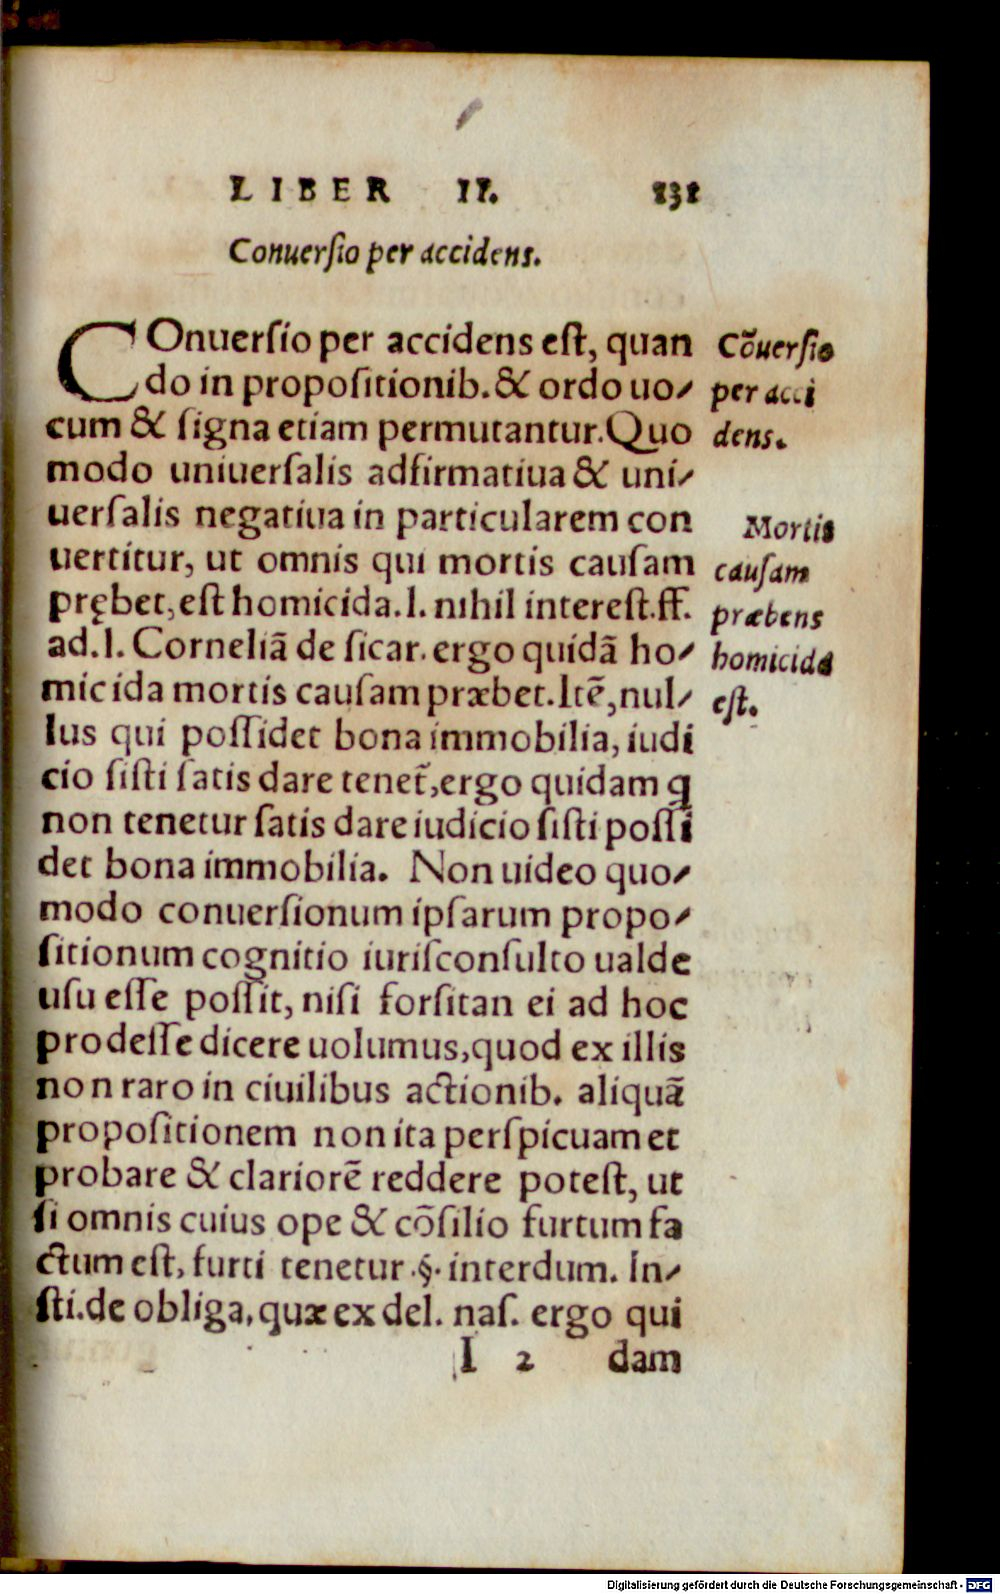 LIBER II. 131
Conuerſio per accidens.
COnuerſio per accidens eſt, quan
do in propoſitionib. & ordo uo-
cum & ſigna etiam permutantur. Quo
modo uniuerſalis adfirmatiua & uni-
uerſalis negatiua in particularem con
uertitur, ut omnis qui mortis cauſam
prębet, eſt homicida. l. nihil intereſt. ff.
ad. l. Corneliā de ſicar. ergo quidā ho-
micida mortis cauſam præbet. Itē, nul-
lus qui poſſidet bona immobilia, iudi
cio ſiſti ſatis dare tenet̃, ergo quidam q
non tenetur ſatis dare iudicio ſiſti poſſi
det bona immobilia. Non uideo quo-
modo conuerſionum ipſarum propo-
ſitionum cognitio iuriſconſulto ualde
uſu eſſe poſſit, niſi forſitan ei ad hoc
prodeſſe dicere uolumus, quod ex illis
non raro in ciuilibus actionib. aliquā
propoſitionem non ita perſpicuam et
probare & clariorē reddere poteſt, ut
ſi omnis cuius ope & cōſilio furtum fa
ctum eſt, furti tenetur .§. interdum. In-
ſti. de obliga, quæ ex del. naſ. ergo qui
I 2 dam
Cōuerſio
per acci
dens.
Mortis
cauſam
præbens
homicida
eſt.
Digitalisierung gefördert durch die Deutsche Forschungsgemeinschaft - DFG